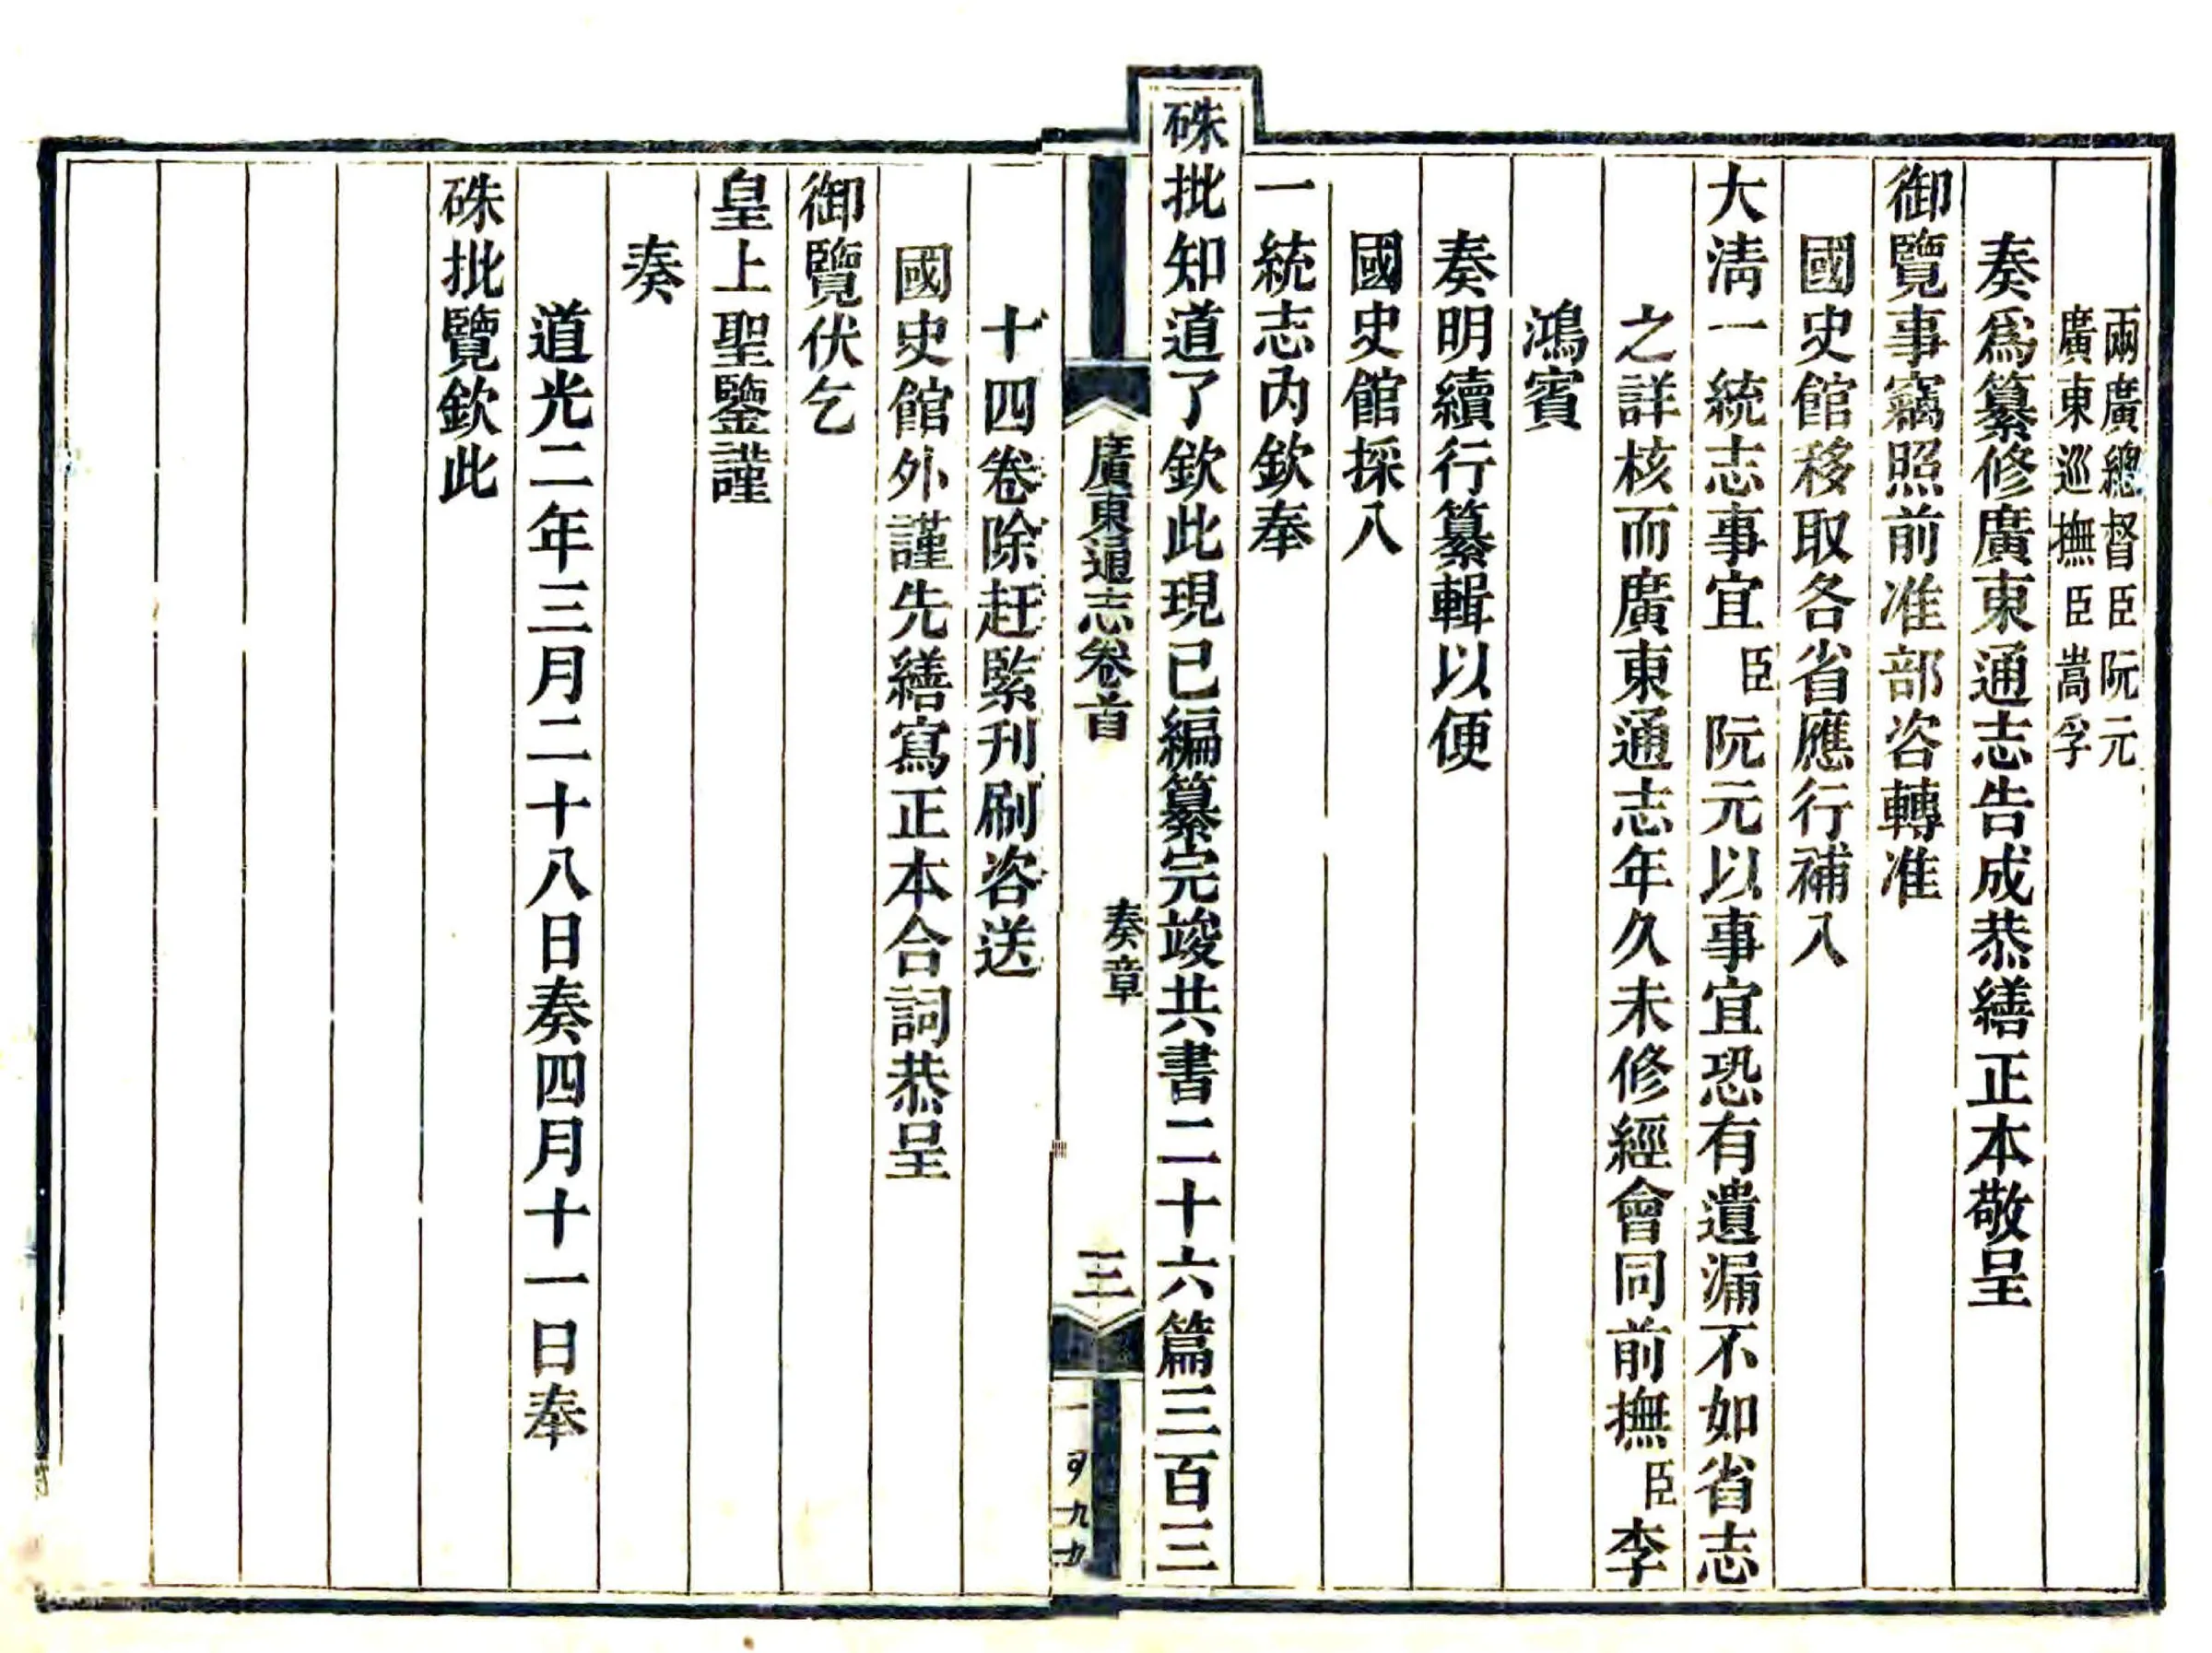 兩廣總督臣阮元
廣東巡撫臣嵩孚
奏爲纂修廣東通志告成恭繕正本敬呈
御覽事竊照前准部咨轉准
國史館移取各省應行補入
大淸一統志事宜臣阮元以事宜恐有遺漏不如省志
之詳核而廣東通志年久未修經會同前撫臣李
鴻賓
奏明續行纂輯以便
國史館採入
一統志內欽奉
硃批知道了欽此現已編纂完竣共書二十六篇三百三
廣東通志卷首
奏章
三
十四卷除赶緊刊刷咨送
國史館外謹先繕寫正本合詞恭呈
御覽伏乞
皇上聖鑒謹
奏
道光二年三月二十八日奏四月十一日奉
硃批覽欽此